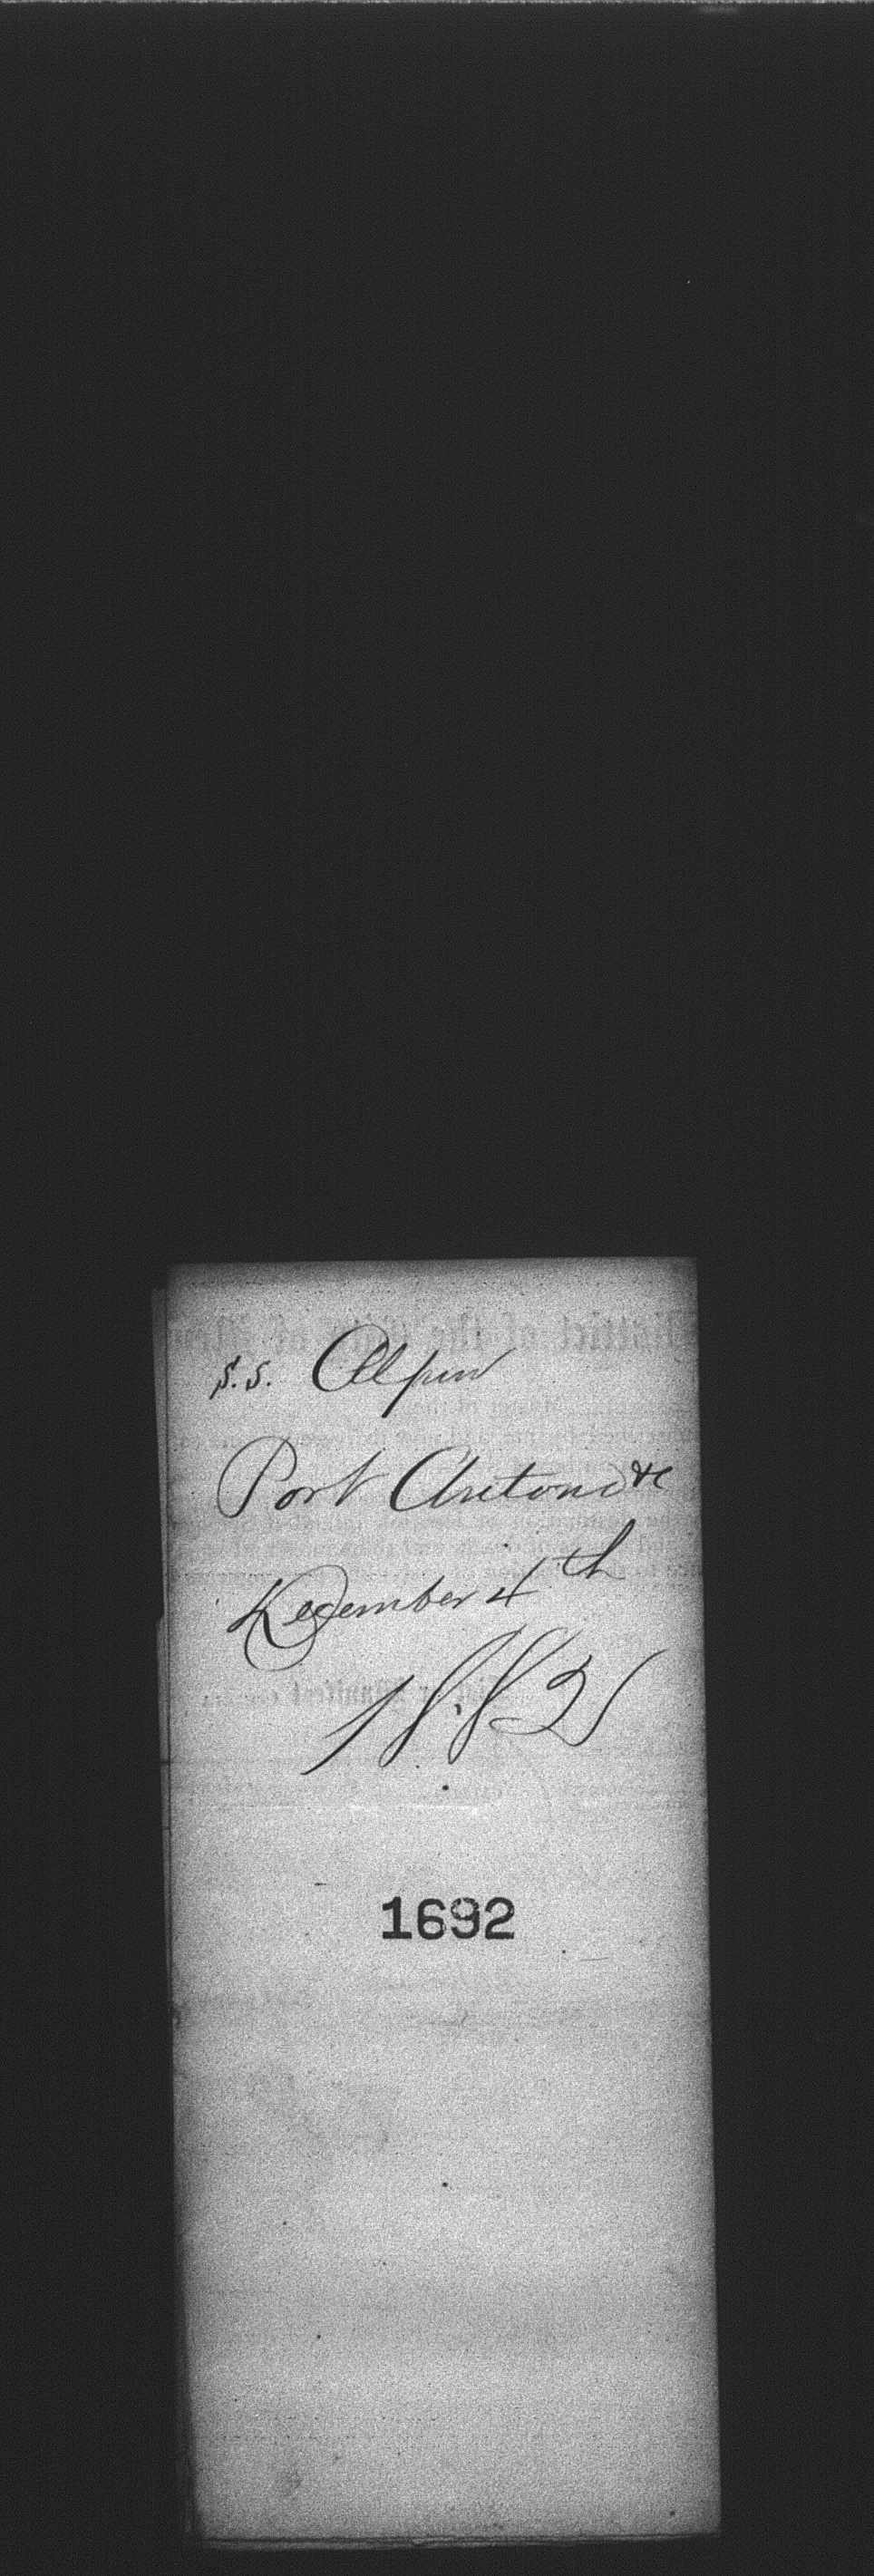 S.S. Alpin
Port Antonio &c
December 4th
1882
1692